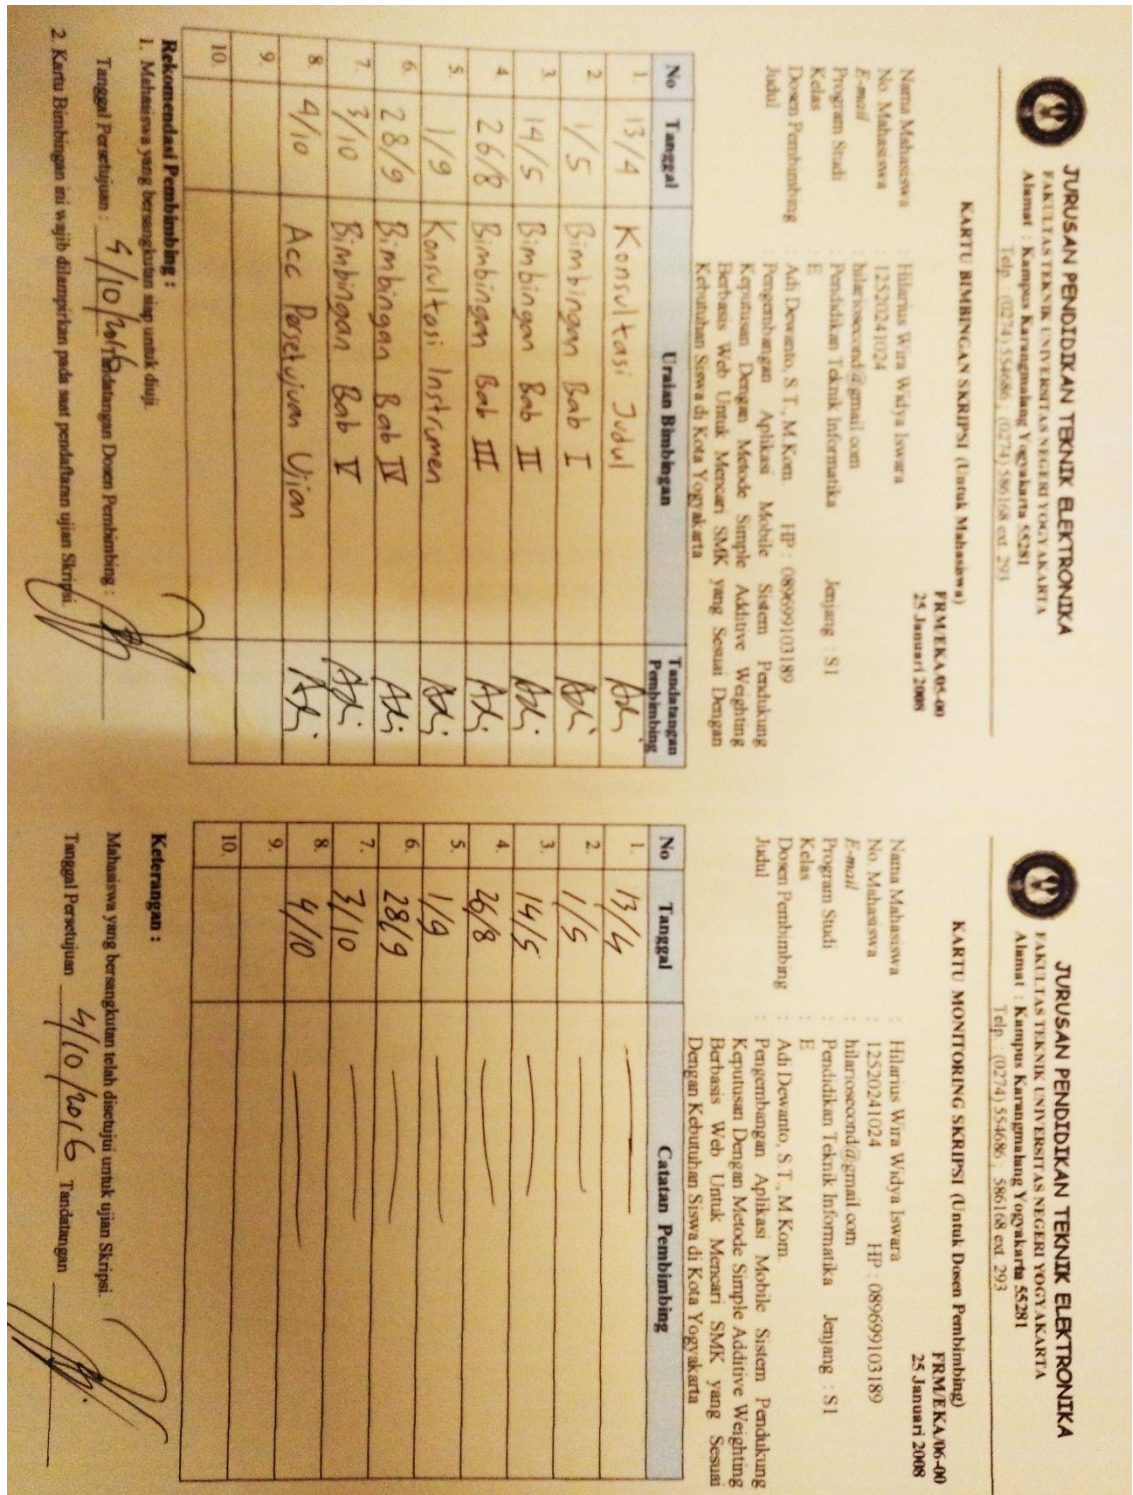 JURUSAN PENDIDIKAN TEKNIK ELEKTRONIKA
FAKULTAS TEKNIK UNIVERSITAS NEGERI YOGYAKARTA
Alamat : Kampus Karangmalang Yogyakarta 55281
Telp. : (0274) 554686 ; (0274) 586168 ext. 293
FRM/EKA/05-00
25 Januari 2008
KARTU BIMBINGAN SKRIPSI (Untuk Mahasiswa)
Nama Mahasiswa : Hilarius Wira Widya Iswara
No. Mahasiswa : 12520241024
E-mail : hilariosecond@gmail.com
Program Studi : Pendidikan Teknik Informatika Jenjang : S1
Kelas : E
Dosen Pembimbing : Adi Dewanto, S.T., M.Kom HP : 089699103189
Judul : Pengembangan Aplikasi Mobile Sistem Pendukung
Keputusan Dengan Metode Simple Additive Weighting
Berbasis Web Untuk Mencari SMK yang Sesuai Dengan
Kebutuhan Siswa di Kota Yogyakarta
No Tanggal Uraian Bimbingan Tandatangan Pembimbing
1. 13/4 Konsultasi Judul Adi
2. 1/5 Bimbingan Bab I Adi
3. 14/5 Bimbingan Bab II Adi
4. 26/8 Bimbingan Bab III Adi
5. 1/9 Konsultasi Instrumen Adi
6. 28/9 Bimbingan Bab IV Adi
7. 3/10 Bimbingan Bab V Adi
8. 4/10 Acc Persetujuan Ujian Adi
9.
10.
Rekomendasi Pembimbing :
1. Mahasiswa yang bersangkutan siap untuk diuji.
Tanggal Persetujuan : 4/10/2016 Tandatangan Dosen Pembimbing :
2. Kartu Bimbingan ini wajib dilampirkan pada saat pendaftaran ujian Skripsi.
JURUSAN PENDIDIKAN TEKNIK ELEKTRONIKA
FAKULTAS TEKNIK UNIVERSITAS NEGERI YOGYAKARTA
Alamat : Kampus Karangmalang Yogyakarta 55281
Telp. : (0274) 554686 ; 586168 ext. 293
FRM/EKA/06-00
25 Januari 2008
KARTU MONITORING SKRIPSI (Untuk Dosen Pembimbing)
Nama Mahasiswa : Hilarius Wira Widya Iswara
No. Mahasiswa : 12520241024 HP : 089699103189
E-mail : hilariosecond@gmail.com
Program Studi : Pendidikan Teknik Informatika Jenjang : S1
Kelas : E
Dosen Pembimbing : Adi Dewanto, S.T., M.Kom.
Judul : Pengembangan Aplikasi Mobile Sistem Pendukung
Keputusan Dengan Metode Simple Additive Weighting
Berbasis Web Untuk Mencari SMK yang Sesuai
Dengan Kebutuhan Siswa di Kota Yogyakarta
No Tanggal Catatan Pembimbing
1. 13/4
2. 1/5
3. 14/5
4. 26/8
5. 1/9
6. 28/9
7. 3/10
8. 4/10
9.
10.
Keterangan :
Mahasiswa yang bersangkutan telah disetujui untuk ujian Skripsi.
Tanggal Persetujuan 4/10/2016 Tandatangan